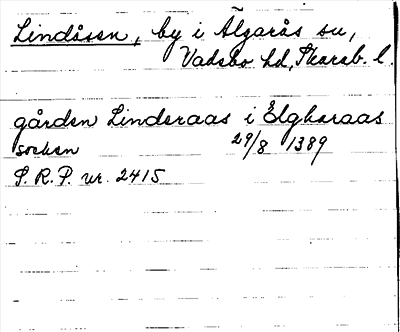 Lindåsen, by i Älgarås su,
Vadsbo hd, Skarab. l.
gården Linderaas i Elgharaas
socken 29/8 1389
S. R. P. nr. 2415